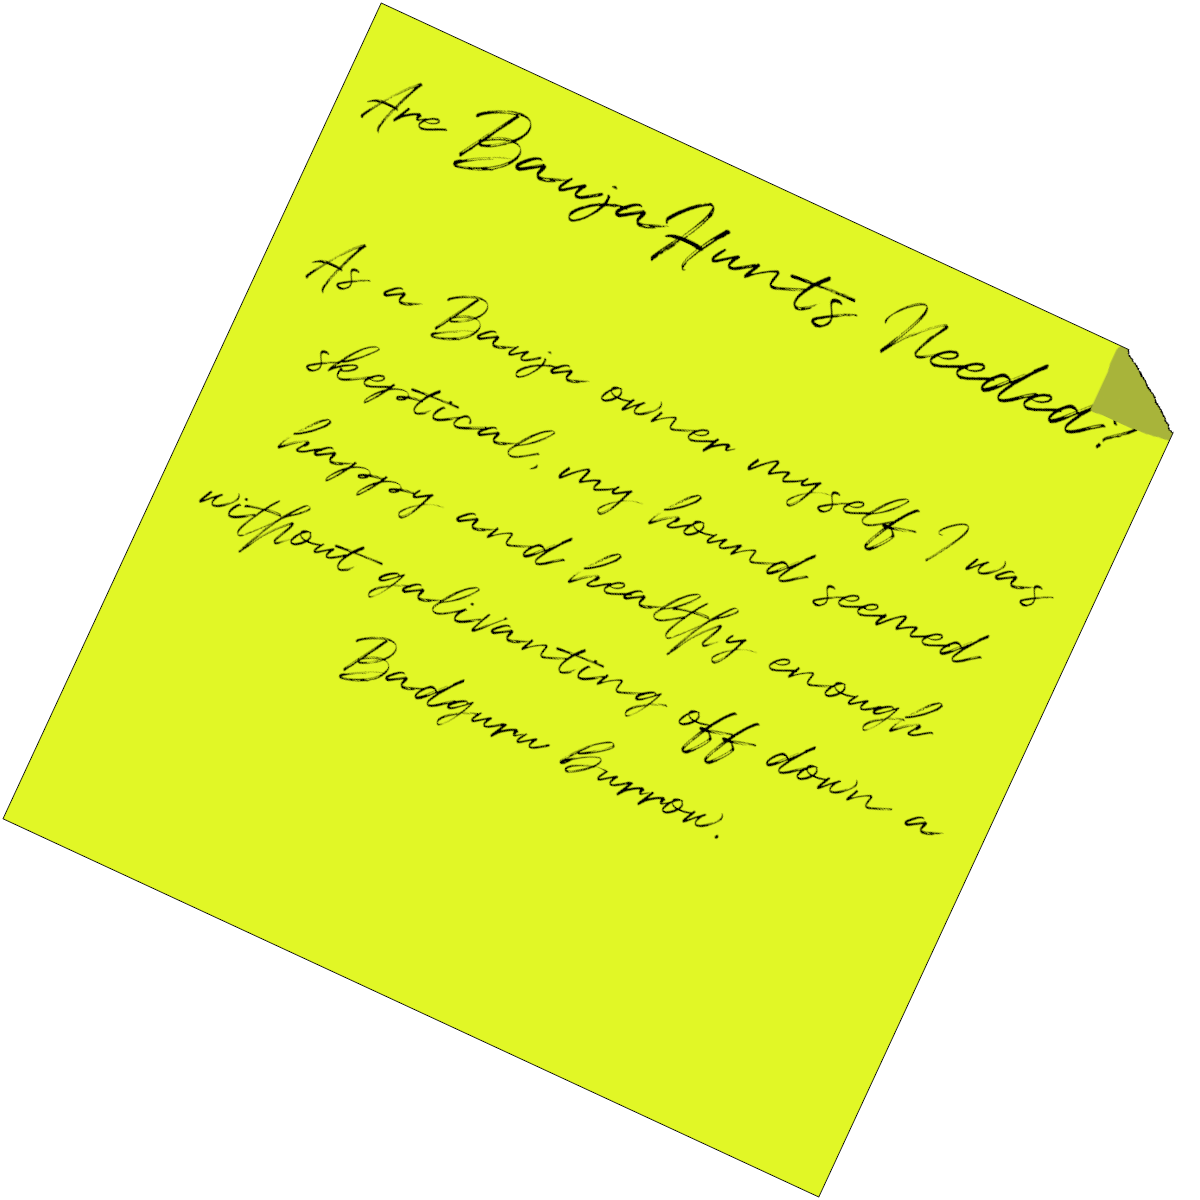 Are BaujaHunts Needed?
As a Bauja owner myself I was
skeptical, my hound seemed
happy and healthy enough
without galivanting off down a
Badguru Burrow.